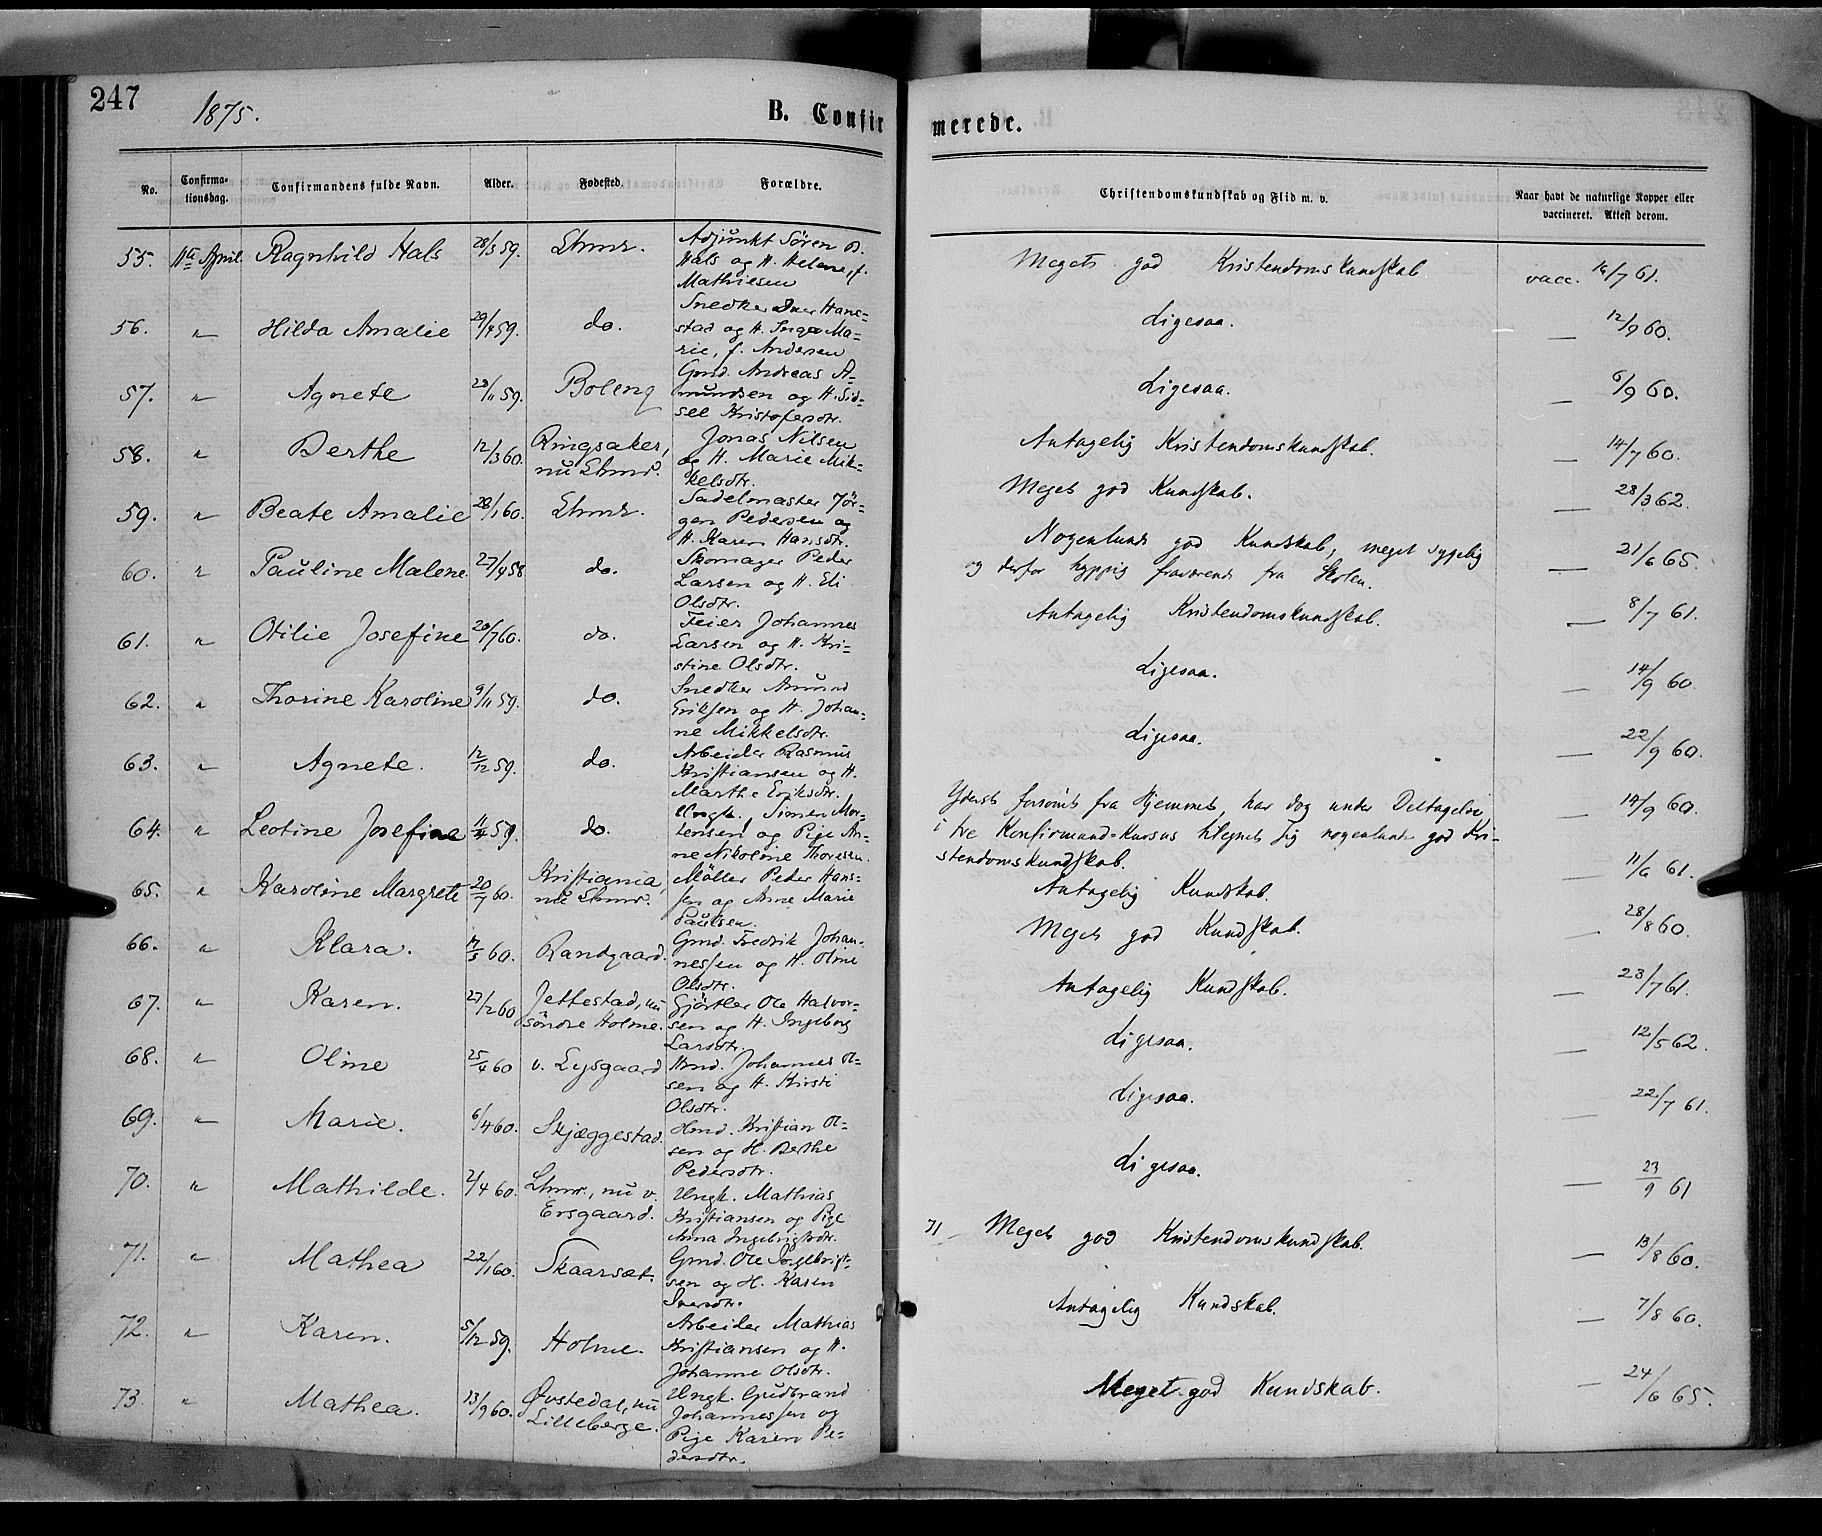 247
1875.
B. Confirmerede.
No.
Confirmationsdag.
Confirmandens fulde Navn.
Alder.
Fødested.
Forældre.
Christendomskundskab og Flid m. v.
Naar havt de naturlige Kopper eller
vaccineret. Attest derom.
55. 11te April Ragnhild Hals 28/3 59. Lhmr. Adjunkt Sören B.
Hals og H. Helene, f.
Mathiesen
Megets god Kristendomskundskab
vacc. 16/7 61.
56. " Hilda Amalie 29/4 59. do. Snedker Iver Hans-
stad og H. Inga Ma-
rie, f. Andersen
Ligesaa.
— 12/9 60.
57. " Agnete 23/11 59. Boleng Gmd. Andreas A-
mundsen og H. Sid-
sel Kristofersdtr.
Ligesaa.
— 6/9 60.
58. " Berthe 12/3 60. Ringsaker,
nu Lhmr. Jonas Nilsen
og H. Marie Mik-
kelsdtr.
Antagelig Kristendomskundskab.
— 14/7 60.
59. " Beate Amalie 28/1 60. Lhmr. Sadelmaster Jör-
gen Pedersen og
H. Karen Hansdtr.
Megets god Kundskab.
— 28/3 62.
60. " Pauline Malene 27/4 58 do. Skomager Peder
Larsen og H. Eli
Olsdtr.
Nogenlunde god Kundskab, meget sygelig
og derfor hyppig fraværende fra Skolen.
— 21/6 65.
61. " Otilie Josefine 20/7 60. do. Feier Johannes
Larsen og H. Kri-
stine Olsdtr.
Antagelig Kristendomskundskab.
— 8/7 61.
62. " Thorine Karoline 9/11 59. do. Snedker Amund
Eriksen og H. Johan-
ne Mikkelsdtr.
Ligesaa.
— 14/9 60
63. " Agnete. 12/12 59. do. Arbeider Rasmus
Kristiansen og H.
Marthe Eriksdtr.
Ligesaa.
— 22/9 60.
64. " Leotine Josefine 11/4 59. do. Ungk. Simen Mor-
tensen og Pige An-
ne Nikoline Thoresen.
Yderst forsömt fra Hjemmet, har dog under Deltagelse
i tve Konfirmand-kursus tilegnet sig nogenlunde god Kri-
stendomskundskab.
— 14/9 60.
65. " Karoline Margrete 20/7 60. Kristiania,
nu Lhmr. Möller Peder Hans-
sen og Anne Marie
Paulsen
Antagelig Kundskab.
— 11/6 61.
66. " Klara. 17/5 60. Randgaard. Gmd. Fredrik Johan-
nessen og H. Oline
Olsdtr.
Megets god Kundskab.
28/8 60.
67. " Karen. 27/2 60 Jettestad, nu
söndre Holme. Gjörtler Ole Halvor-
sen og H. Ingeborg
Larsdtr.
Antagelig Kundskab.
— 23/7 61.
68. " Oline 25/4 60 v. Lysgaard Hmd. Johannes Ol-
sen og H. Kirsti
Olsdtr.
Ligesaa.
— 12/5 62.
69. " Marie. 6/4 60. Skjæggestad. Hmd. Kristian Ol-
sen og H. Berthe
Pedersdtr.
Ligesaa.
— 22/7 61.
70. " Mathilde. 2/4 60. Lhmr., nu v.
Ersgaard. Ungk. Mathias
Kristiansen og Pige
Anna Ingebrigtsdtr.
Ligesaa.
— 23/9 61
71. " Mathea 22/1 60. Skaarsæt. Gmd. Ole Ingebrigt-
sen og H. Karen
Iversdtr.
71 — Megets god Kristendomskundskab.
— 13/8 60.
72. " Karen. 5/12 59. Holme. Arbeider Mathias
Kristiansen og H.
Johanne Olsdtr.
Antagelig Kundskab.
— 7/8 60.
73. " Mathea. 13/9 60. Övstedal, nu
Lilleberge. Ungk. Gudbrand
Johannessen og
Pige Karen Pe-
dersdtr.
Meget god Kundskab.
— 24/6 65.